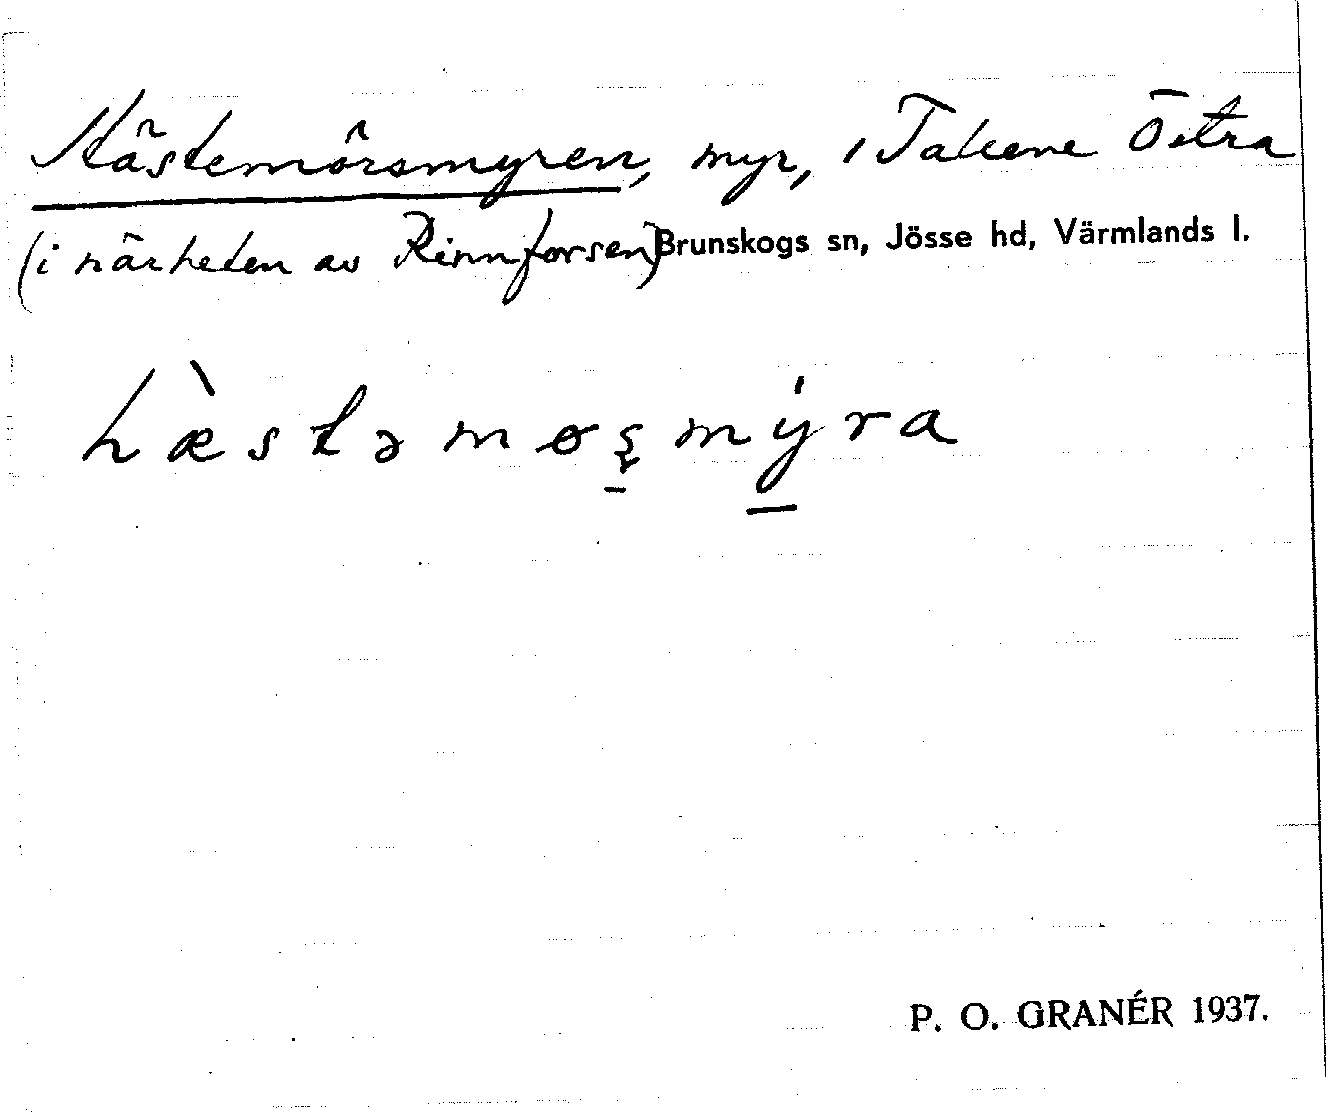 Hästemörsmyren, myr, i Takene Östra
(i närheten av Rinnforsen) Brunskogs sn, Jösse hd, Värmlands l.
hæ̀stəmøʂmýra
P. O. GRANÉR 1937.